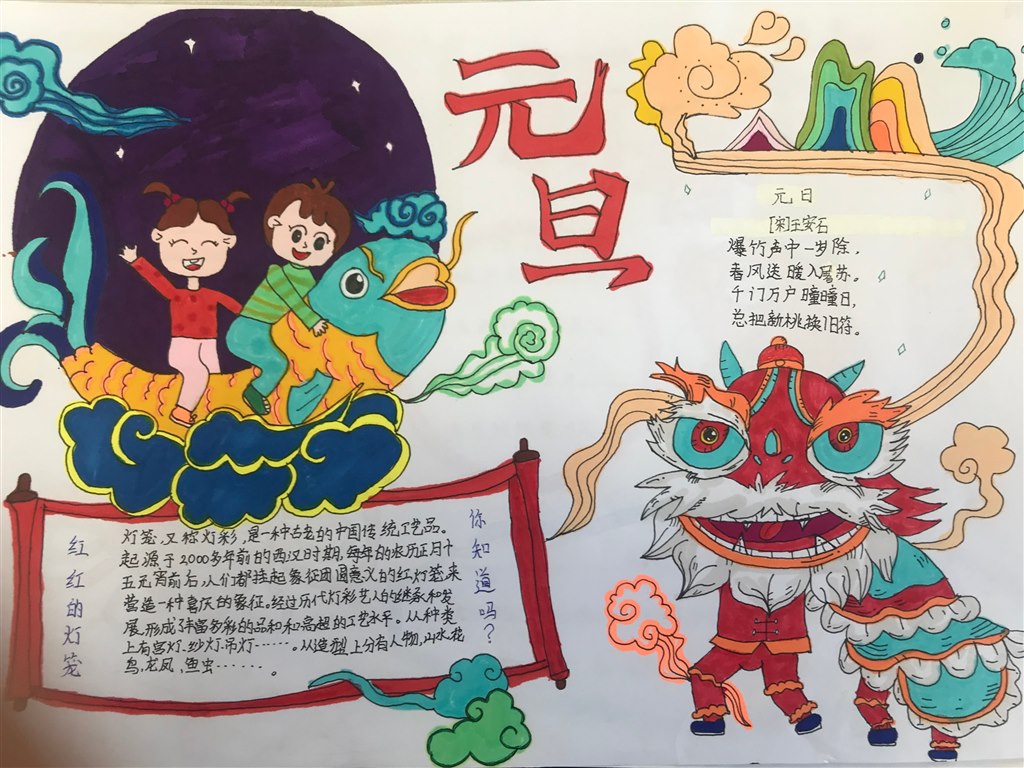 元
旦
元日
[宋]王安石
爆竹声中一岁除,
春风送暖入屠苏。
千门万户曈曈日,
总把新桃换旧符。
你知道吗?
灯笼,又称灯彩,是一种古老的中国传统工艺品。
起源于2000多年前的西汉时期,每年的农历正月十
五元宵前后,人们都挂起象征团圆意义的红灯笼,来
营造一种喜庆的象征。经过历代灯彩艺人的继承和发
展,形成了丰富多彩的品和和高超的工艺水平。从种类
上有宫灯.纱灯.吊灯······。从造型上分有人物,山水,花
鸟,龙凤,鱼虫······。
红红的灯笼